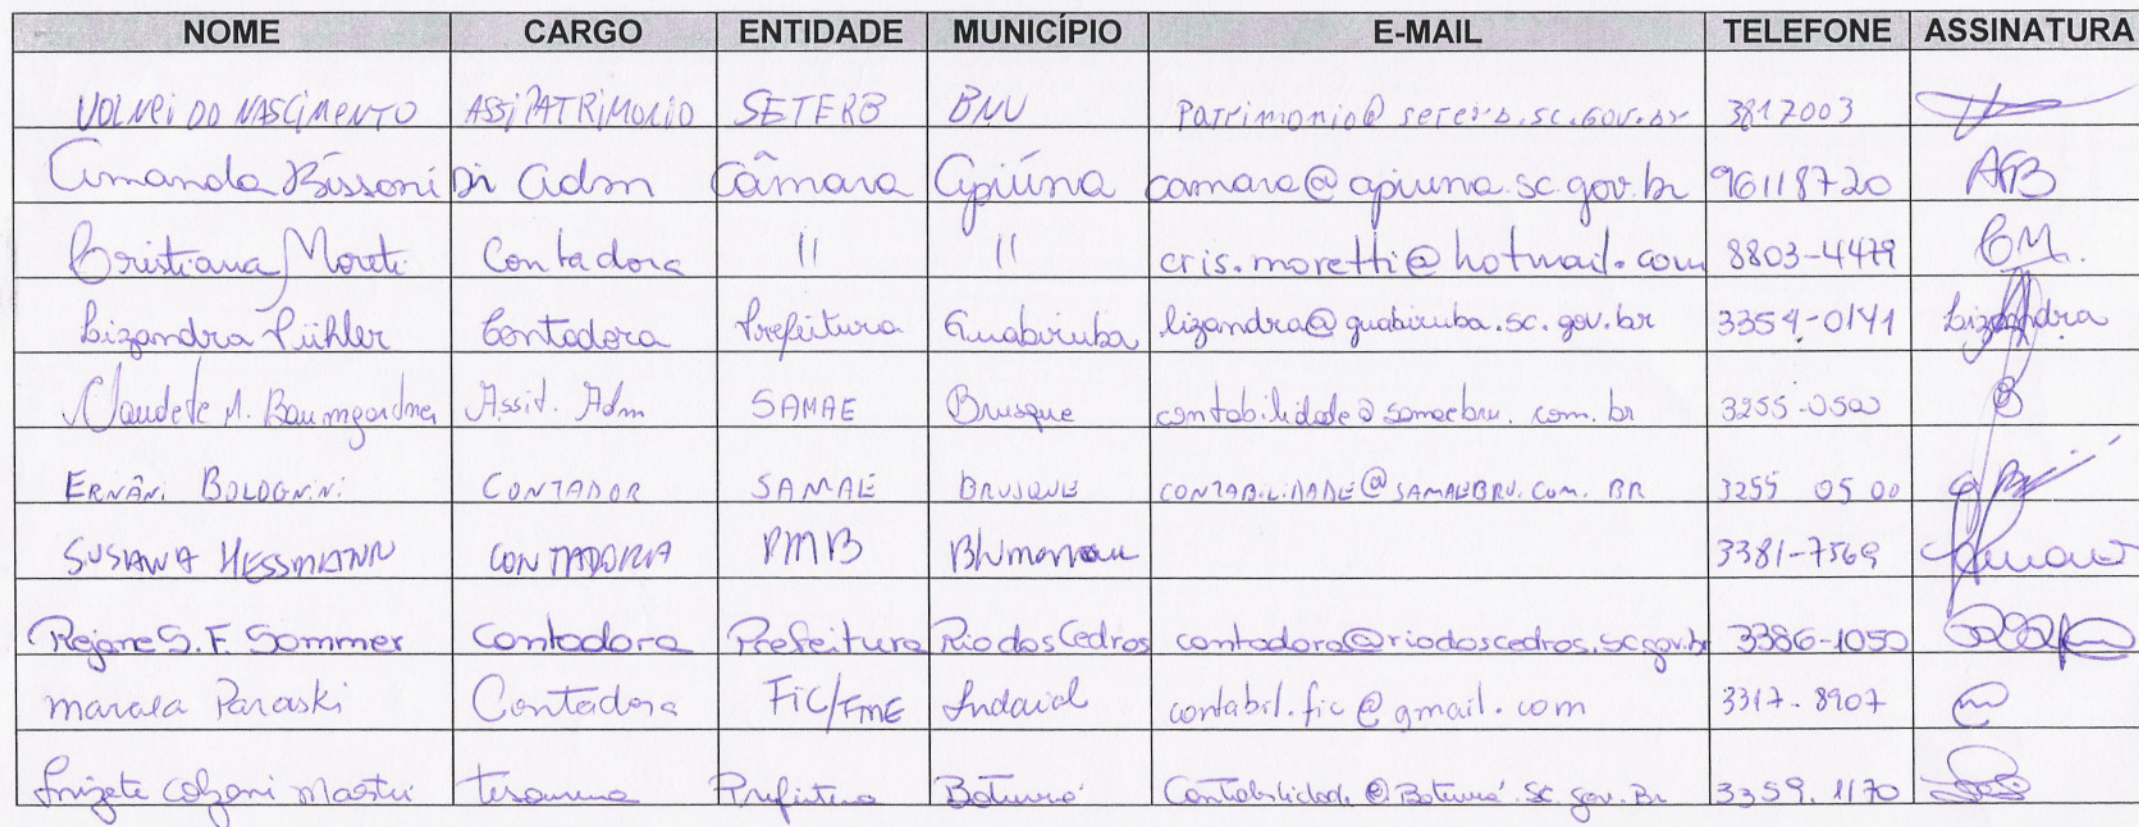 NOME CARGO ENTIDADE MUNICÍPIO E-MAIL TELEFONE ASSINATURA
VOLNEI DO NASCIMENTO ASSI PATRIMONIO SETERB BNU patrimonio@seterb.sc.gov.br 3817003
Amanda Bissoni Di adm Câmara Apiúna camara@apiuna.sc.gov.br 96118720 AGB
Cristiana Moreti Contadora 11 11 cris.moretti@hotmail.com 8803-4479 CM.
Lizandra Pühler Contadora Prefeitura Guabiruba lizandra@guabiruba.sc.gov.br 3354-0141 Lizandra
Claudete M. Baumgardner Assit. Adm SAMAE Brusque contabilidade@samaebru.com.br 3255-0500
ERNÂNI BOLOGNINI CONTADOR SAMAE BRUSQUE CONTABILIDADE@SAMAEBRU.COM.BR 3255 0500
SUSIANA HESSMANN CONTADORIA PMB Blumenau 3381-7569
Rejane S. F. Sommer Contadora Prefeitura Rio dos Cedros contadora@riodoscedros.sc.gov.br 3386-1050
Paraski Contadora FIC/FME Indaial contabil.fic@gmail.com 3317-8907
Colzani Maestri Prefeitura Botuverá Contabilidade@Botuverá.sc.gov.Br 3359.1170